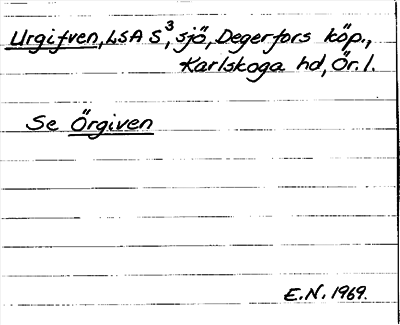 Urgifven, LSA S³, sjö, Degerfors köp.,
Karlskoga hd, Ör. l.
Se Örgiven
E.N. 1969.